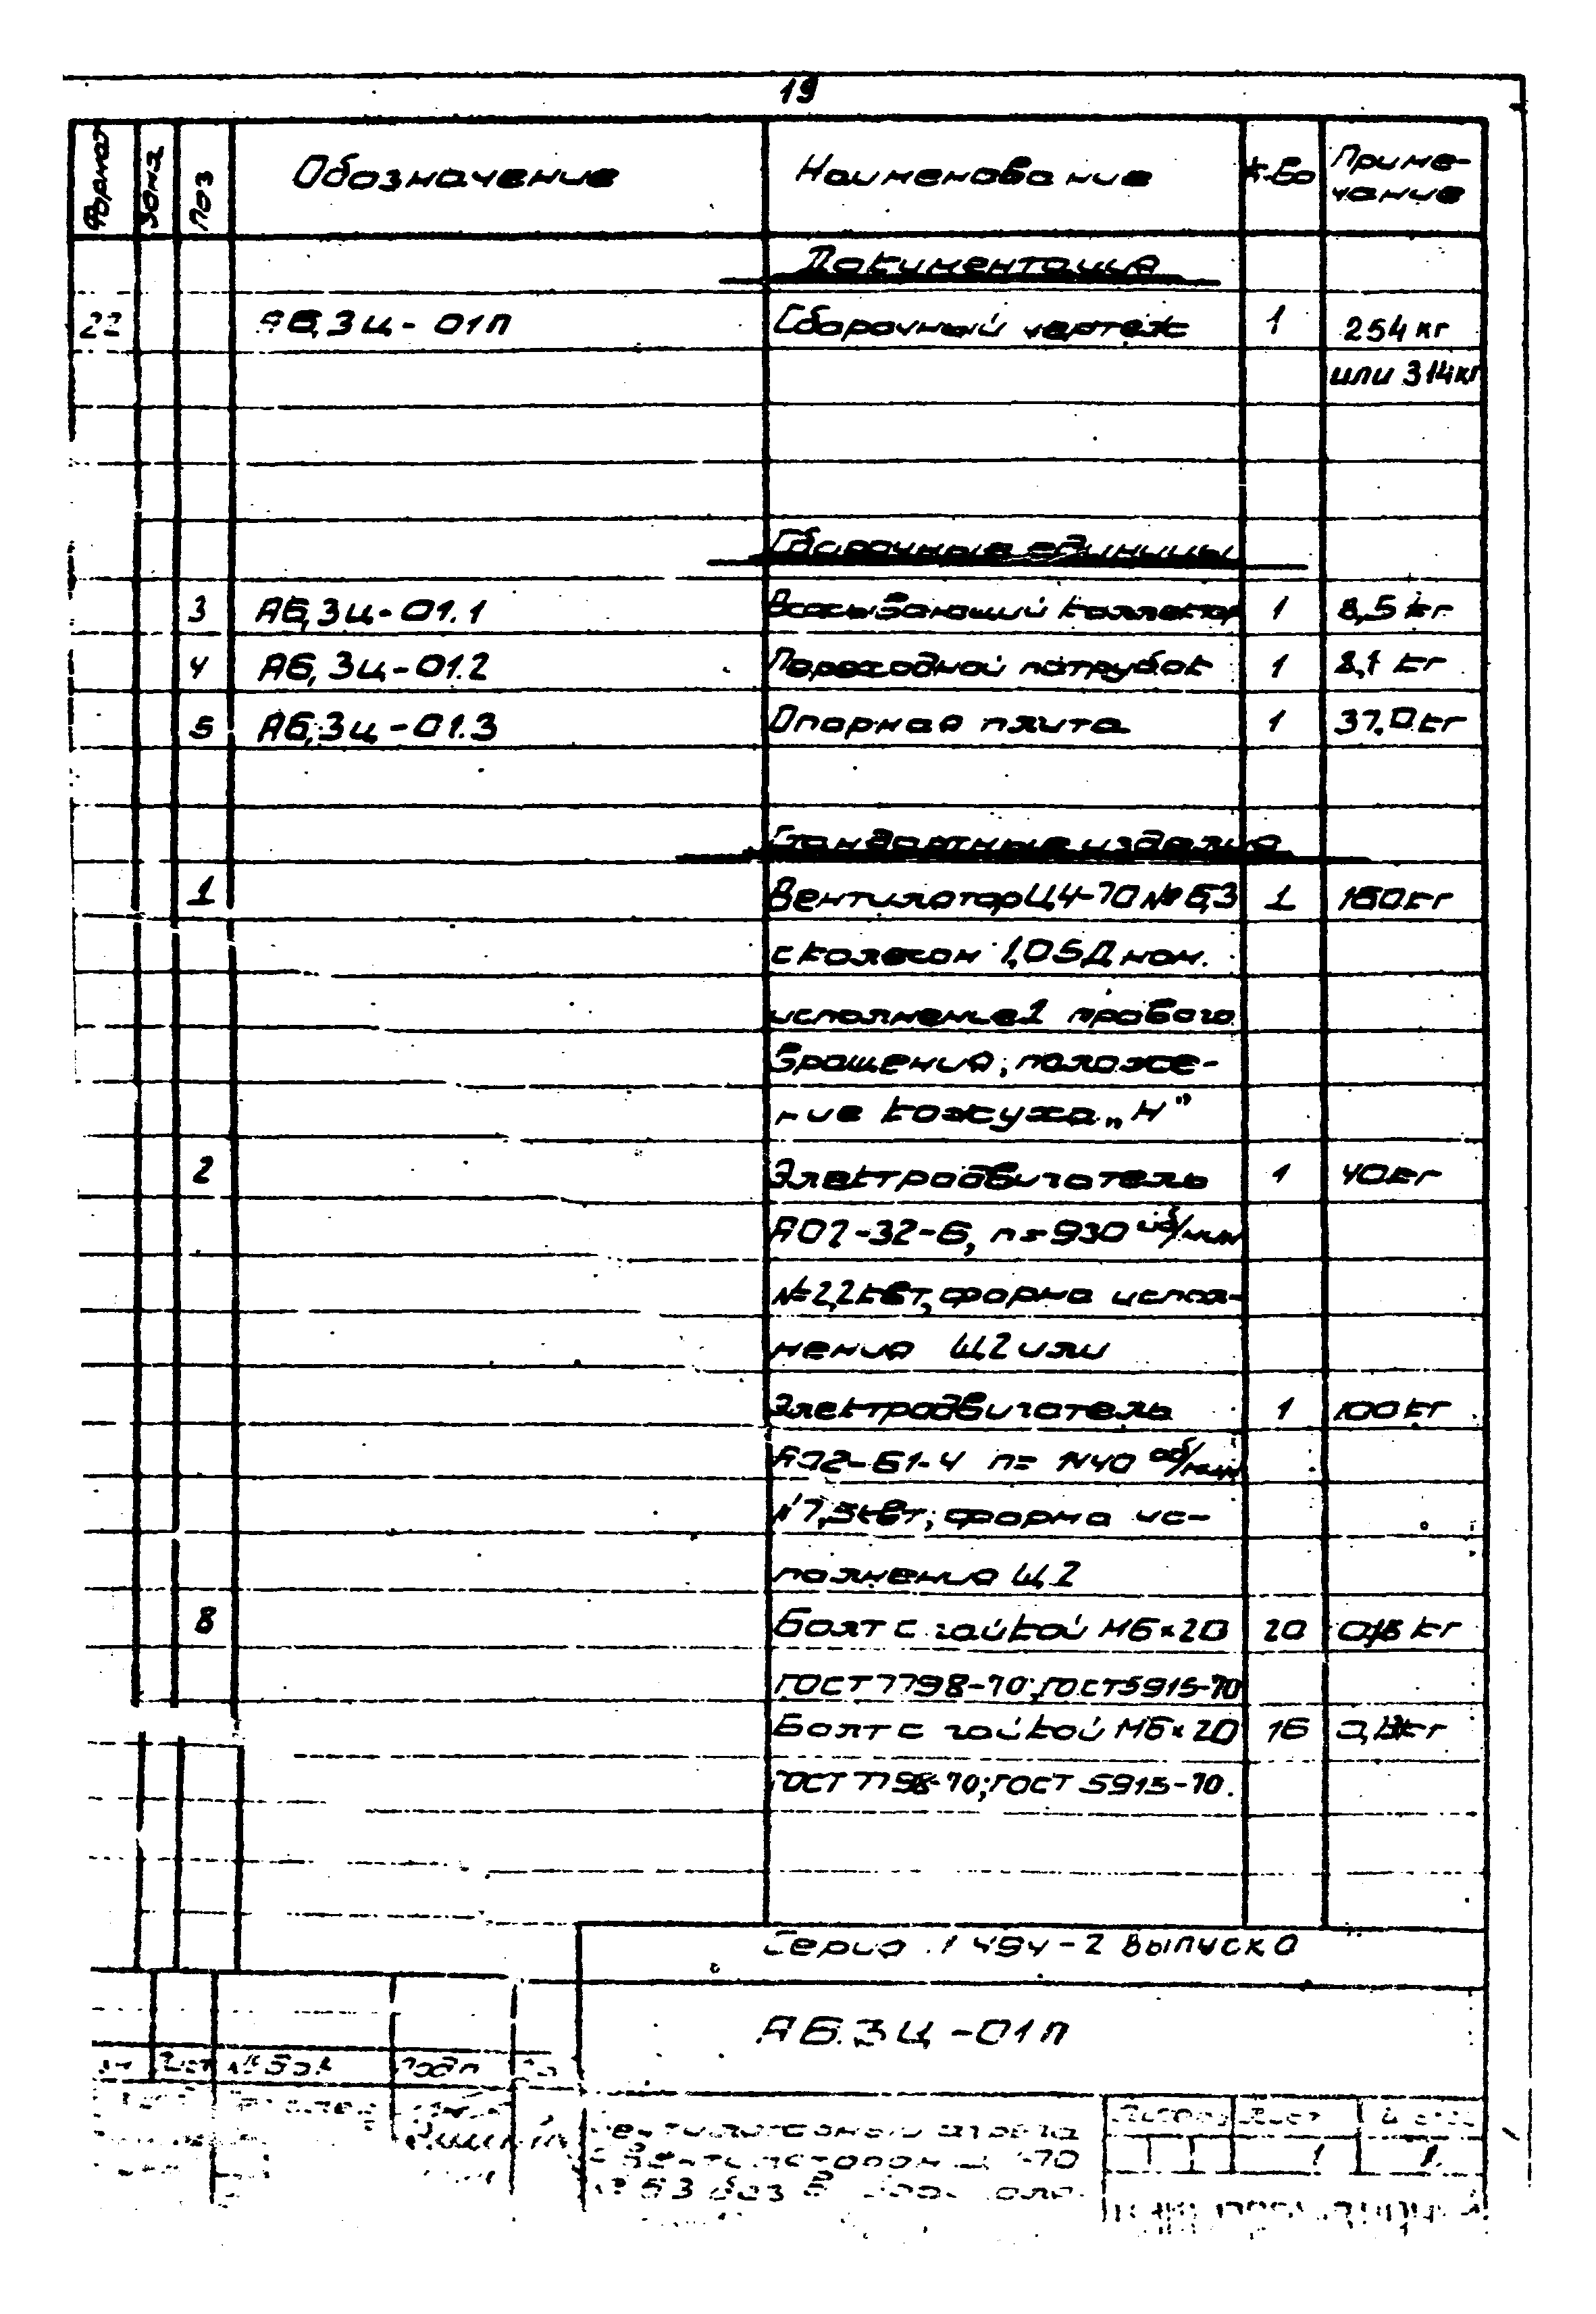 19
Формат Зона Поз Обозначение Наименование К-во Приме-
чание
Документация
22 А6,3ц-01П Сборочный чертеж 1 254 кг
или 314 кг
Сборочные единицы
3 А6,3ц-01.1 Всасывающий коллектор 1 8,5 кг
4 А6,3ц-01.2 Переходной патрубок 1 8,1 кг
5 А6,3ц-01.3 Опорная плита 1 37,0 кг
Стандартные изделия
1 Вентилятор Ц4-70 № 6,3 1 160 кг
с колесом 1,05 Дном.
исполнение 1 правого
вращения, положе-
ние кожуха „Н"
2 Электродвигатель 1 40 кг
АО2-32-6, n=930 об/мин
N=2,2 квт, форма испол-
нения Щ2 или
Электродвигатель 1 100 кг
АО2-51-4 n= 1440 об/мин
N 7,5 квт, форма ис-
полнения Щ2
8 Болт с гайкой М6×20 20 кг
ГОСТ 7798-70; ГОСТ 5915-70
Болт с гайкой М6×20 16 кг
ГОСТ 7798-70; ГОСТ 5915-70.
Серия 1.494-2 выпуск 0
А6.3ц-01П
Лист № док. Подп
Литера Лист
с вентилятором Ц4-70
№ 6,3 без 1 1